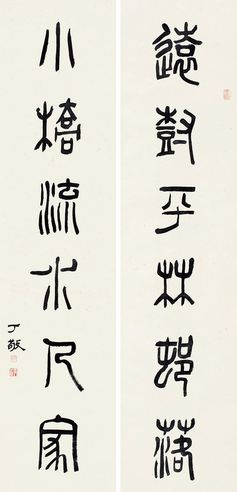 遠尌平林邨落
小橋流水人家
丁敬